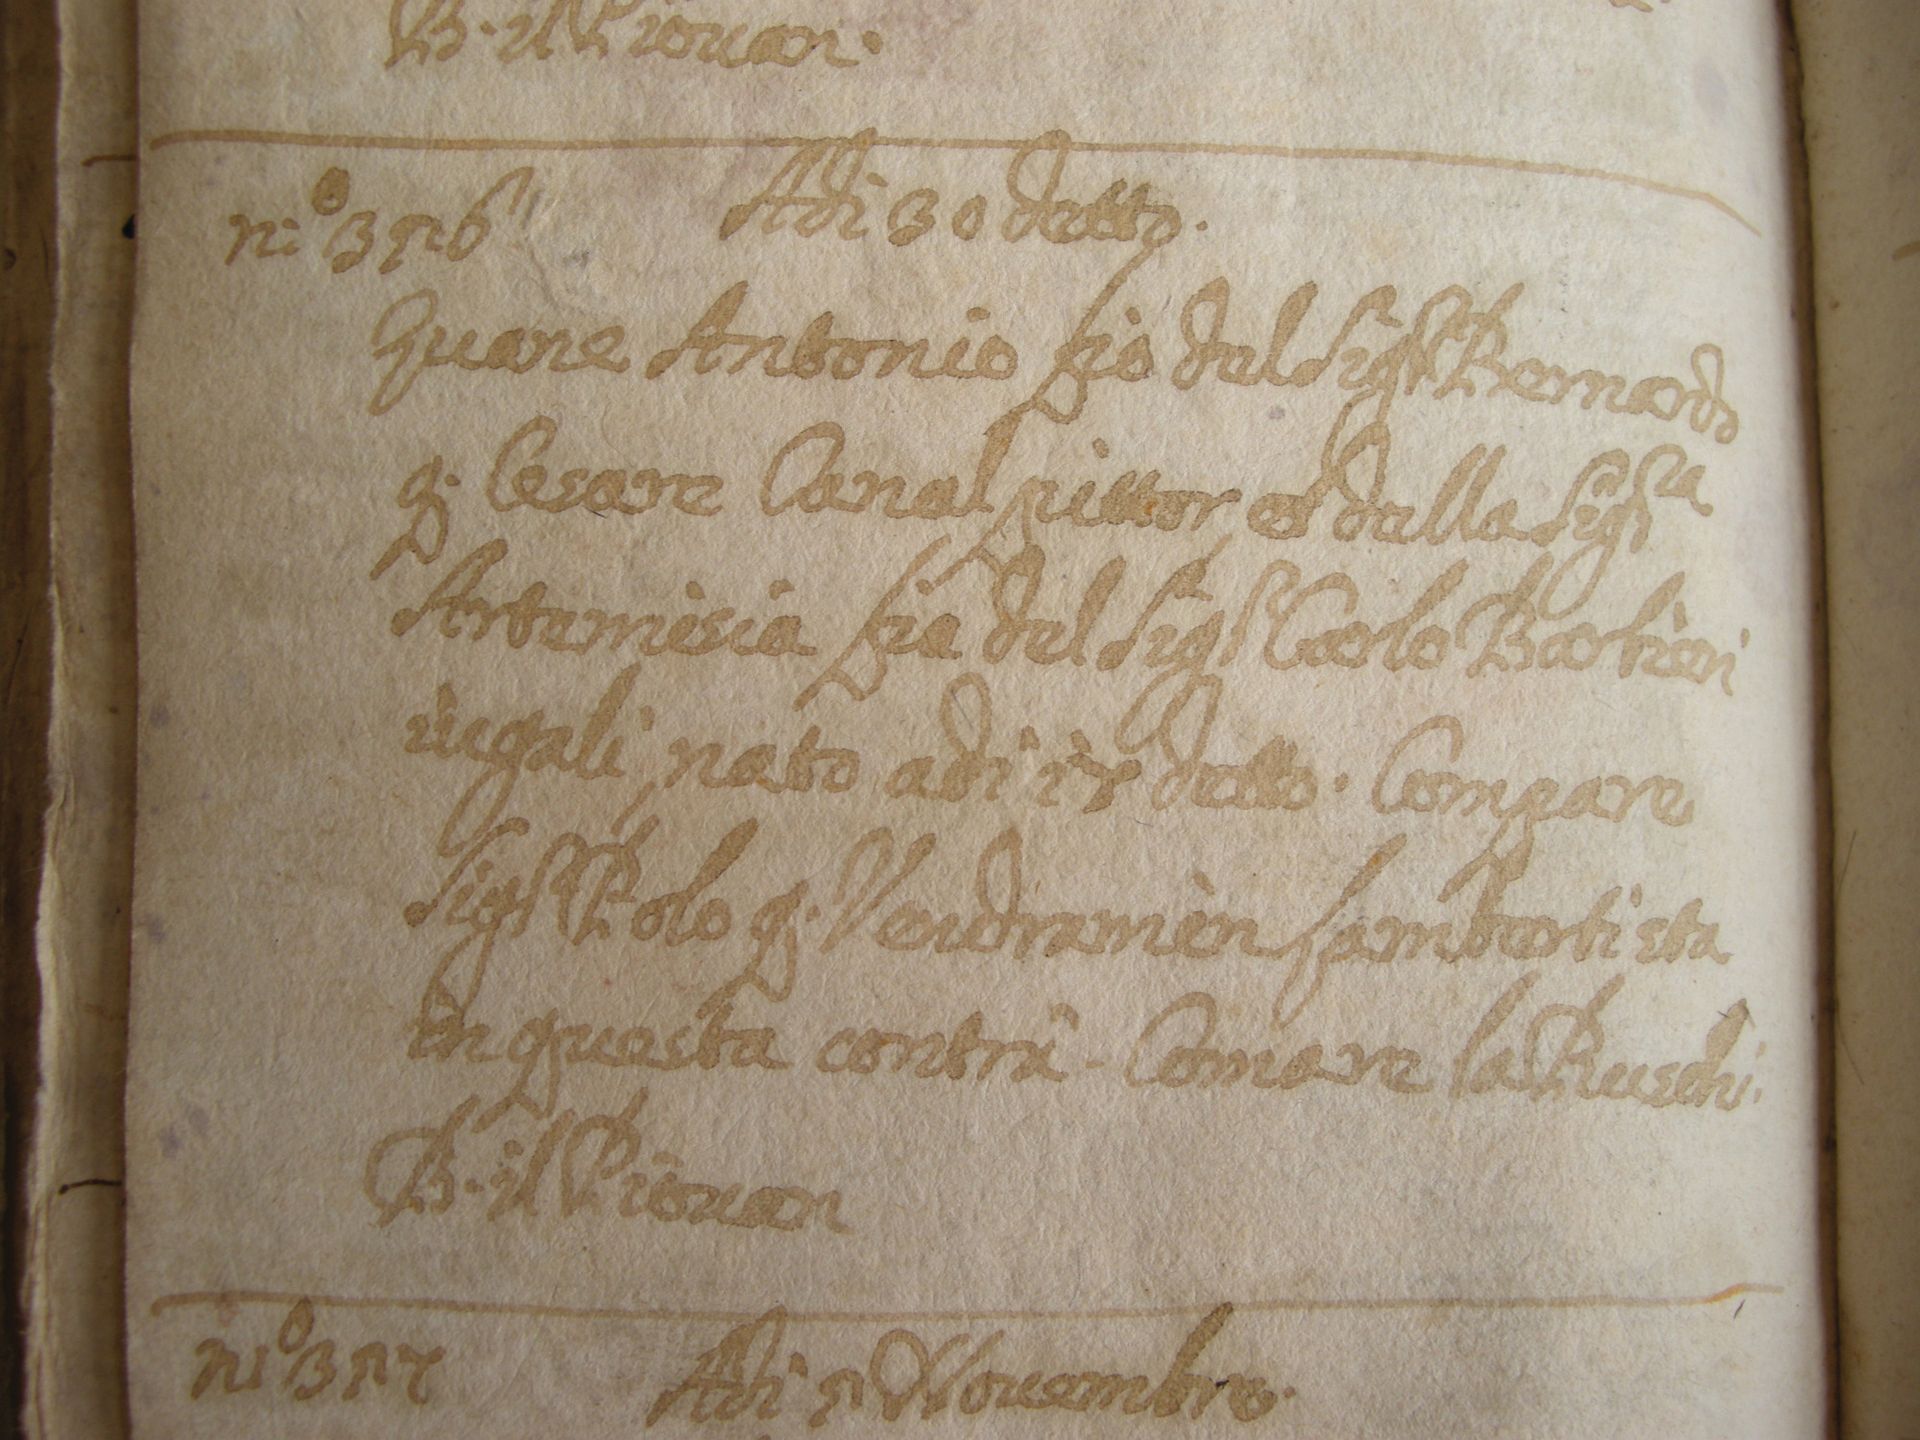 B. il Piouan.
Adi 30 detto.
ni.o 356
Zuane Antonio fio del Sigr Bernardo
q. Cesare Canal pittor et della Sigra
Artemisia fia del Sigr Carlo Barbieri
iugali nato adi 17 detto. Compare
Sigr Polo q. Vendramin sta
in questa contrà. Comare la
B. il Piouan
ni.o 357
Adi 5 Nouembre.